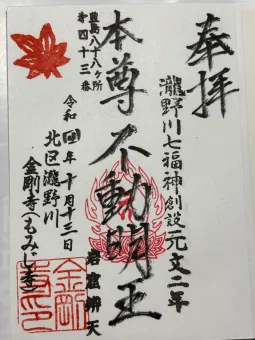 奉拝
瀧野川七福神創設元文二年
本尊不動明王
岩窟辨天
豊島八十八ヶ所
第四十三番
令和四年十月十三日
北区瀧野川
金剛寺(もみじ寺)
金剛寺印